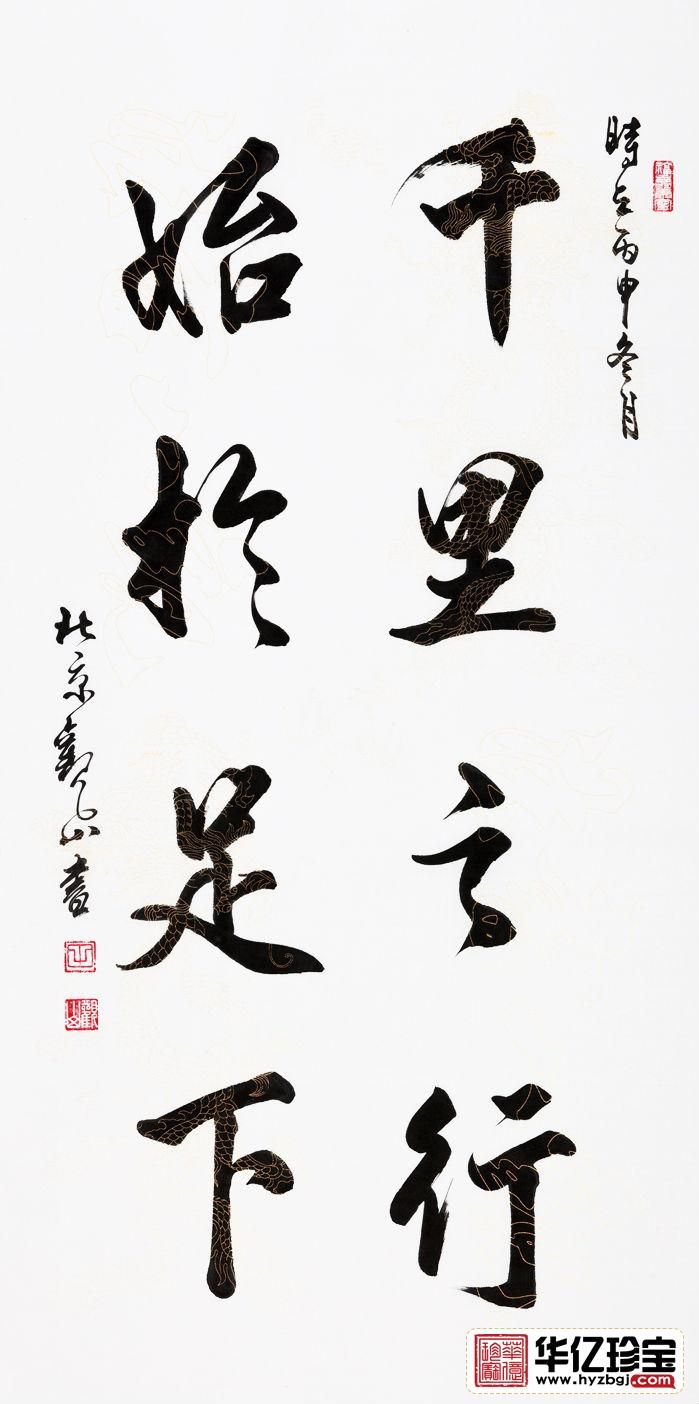 時在丙申冬月
千里之行
始於足下
北京觀山書
觀山
华亿珍宝
www.hyzbgj.com